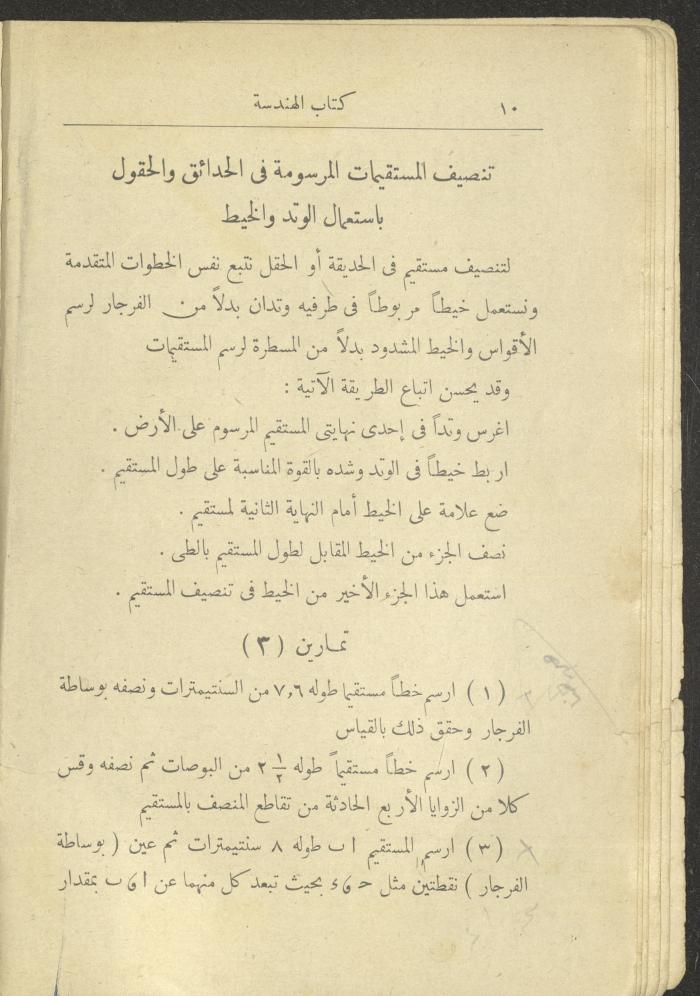 ١٠
كتاب الهندسة
تنصيف المستقيمات المرسومة فى الحدائق والحقول
باستعمال الوتد والخيط
لتنصيف مستقيم فى الحديقة أو الحقل نتبع نفس الخطوات المتقدمة
ونستعمل خيطاً مربوطاً فى طرفيه وتدان بدلاً من الفرجار لرسم
الأقواس والخيط المشدود بدلاً من المسطرة لرسم المستقيمات
وقد يحسن اتباع الطريقة الآتية :
اغرس وتداً فى إحدى نهايتى المستقيم المرسوم على الأرض .
اربط خيطاً فى الوتد وشده بالقوة المناسبة على طول المستقيم .
ضع علامة على الخيط أمام النهاية الثانية لمستقيم .
نصف الجزء من الخيط المقابل لطول المستقيم بالطى .
استعمل هذا الجزء الأخير من الخيط فى تنصيف المستقيم .
تمارين ( ٣ )
( ١ ) ارسم خطاً مستقيما طوله ٧,٦ من السنتيمترات ونصفه بوساطة
الفرجار وحقق ذلك بالقياس
( ٢ ) ارسم خطاً مستقيماً طوله ٢ ١/٢ من البوصات ثم نصفه وقس
كلا من الزوايا الأربع الحادثة من تقاطع المنصف بالمستقيم
( ٣ ) ارسم المستقيم ا ب طوله ٨ سنتيمترات ثم عين ( بوساطة
الفرجار ) نقطتين مثل ح و ء بحيث تبعد كل منهما عن ا و ب بمقدار